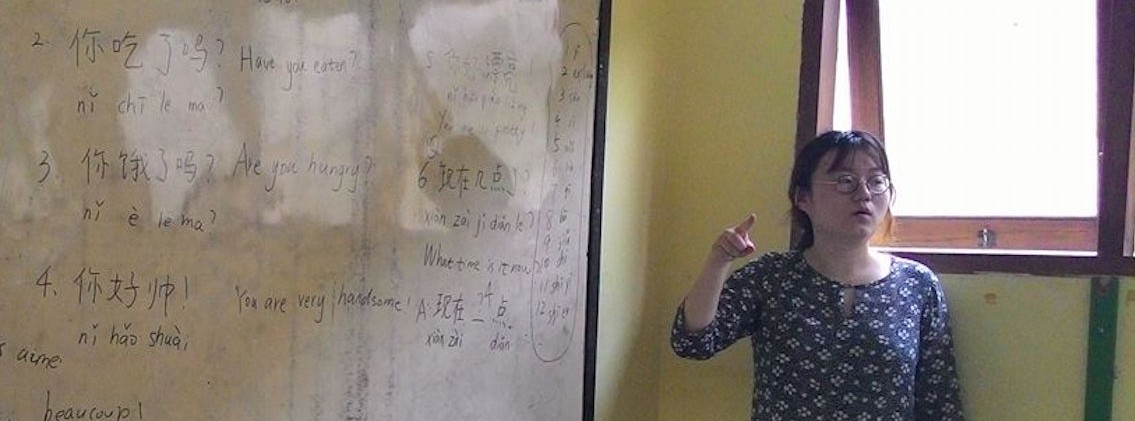 2. 你吃了吗? Have you eaten?
nǐ chī le ma?
3. 你饿了吗? Are you hungry?
nǐ è le ma?
4. 你好帅! You are very handsome!
nǐ hǎo shuài
aime
beaucoup!
5 你好漂亮!
nǐ hǎo piào liàng
pretty!
6 现在几点了?
xiàn zài jǐ diǎn le?
What time is it now?
A: 现在 点
xiàn zài diǎn
2
3
4
5
8
9
10 shí
11 shí yī
12 shí èr